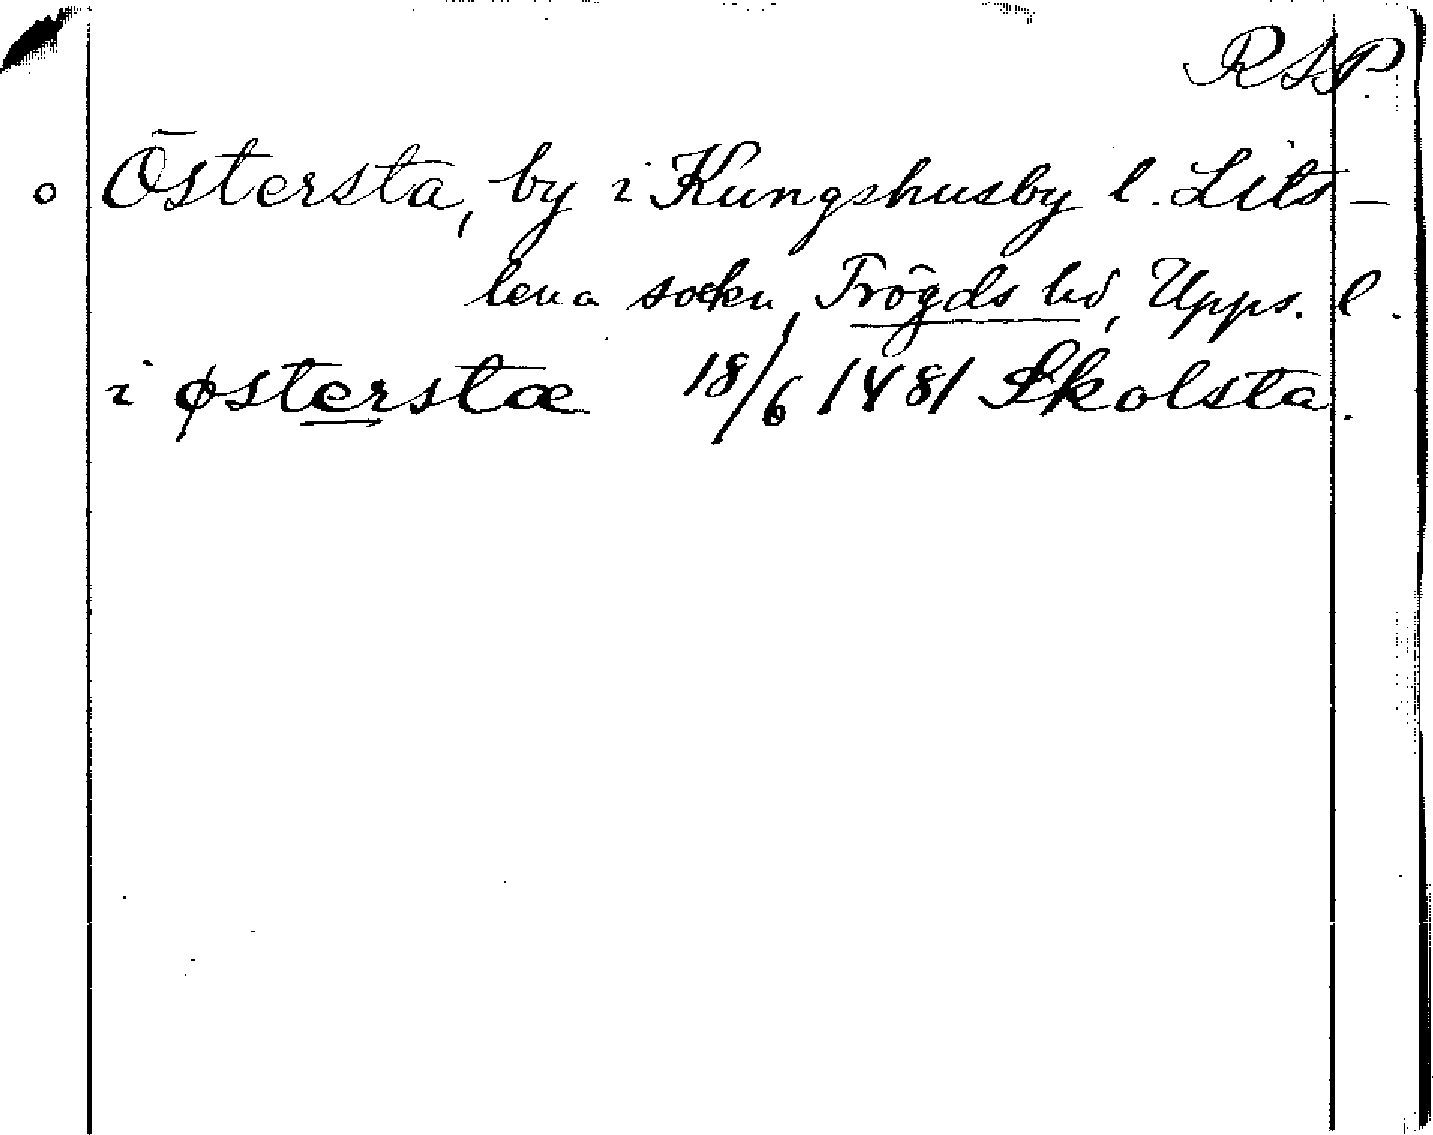 RSP.
o Östersta, by i Kungshusby l. Lits-
lena sockn, Trögds hd, Upps. l.
i østerstæ 18/6 1481 Skolsta.